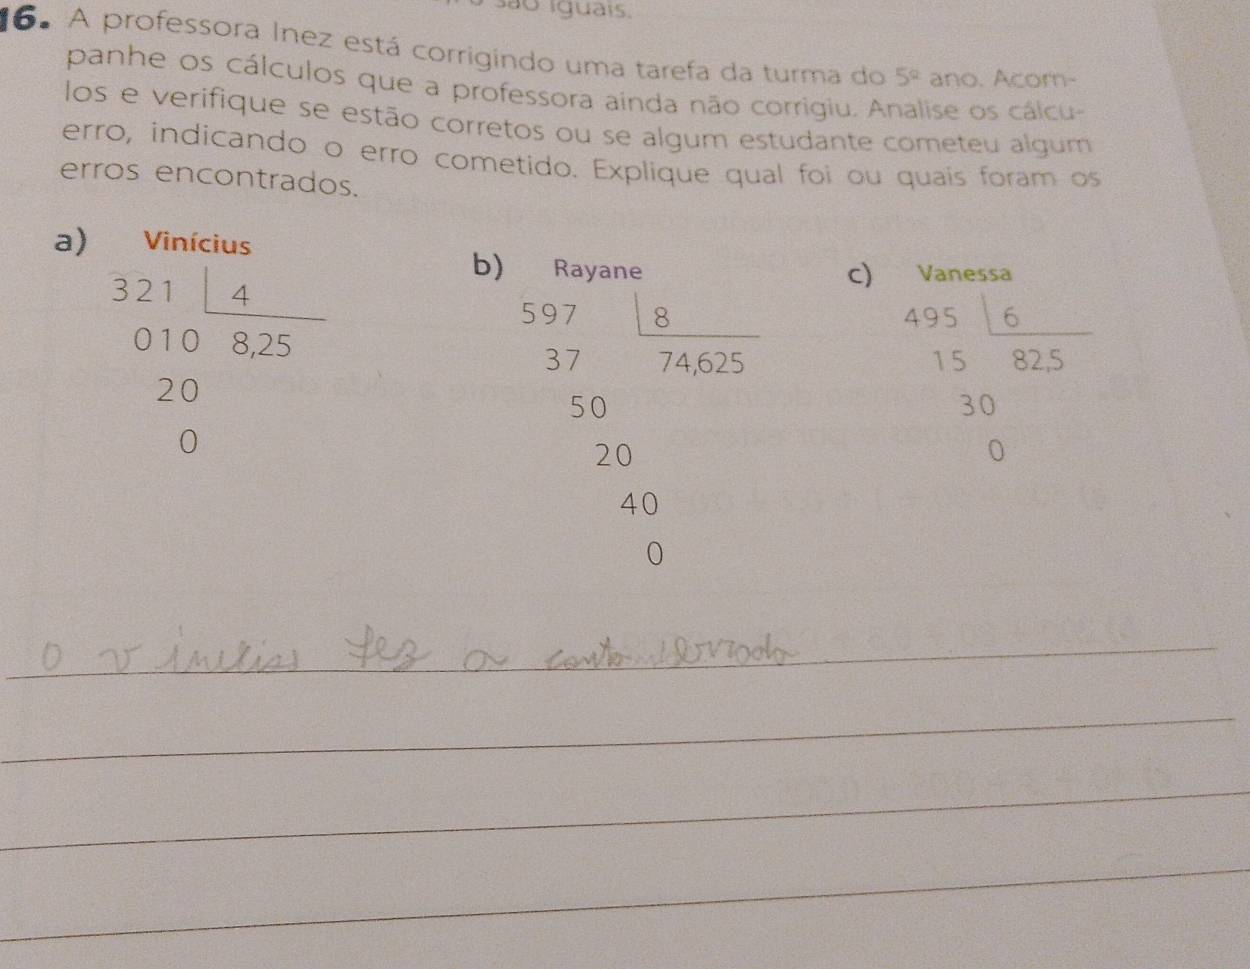 são iguais.
16. A professora Inez está corrigindo uma tarefa da turma do 5º ano. Acom-
panhe os cálculos que a professora ainda não corrigiu. Analise os cálcu-
los e verifique se estão corretos ou se algum estudante cometeu algum
erro, indicando o erro cometido. Explique qual foi ou quais foram os
erros encontrados.
a) Vinícius
321 4
010 8,25
20
0
b) Rayane
597 8
37 74,625
50
20
40
0
c) Vanessa
495 6
15 82,5
30
0
o vinicius fez a conta errada